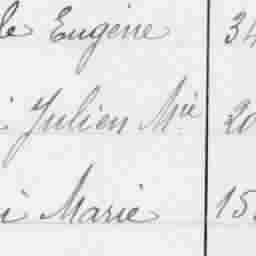 le Eugène 34
i Julien Mie 20
i Marie 15